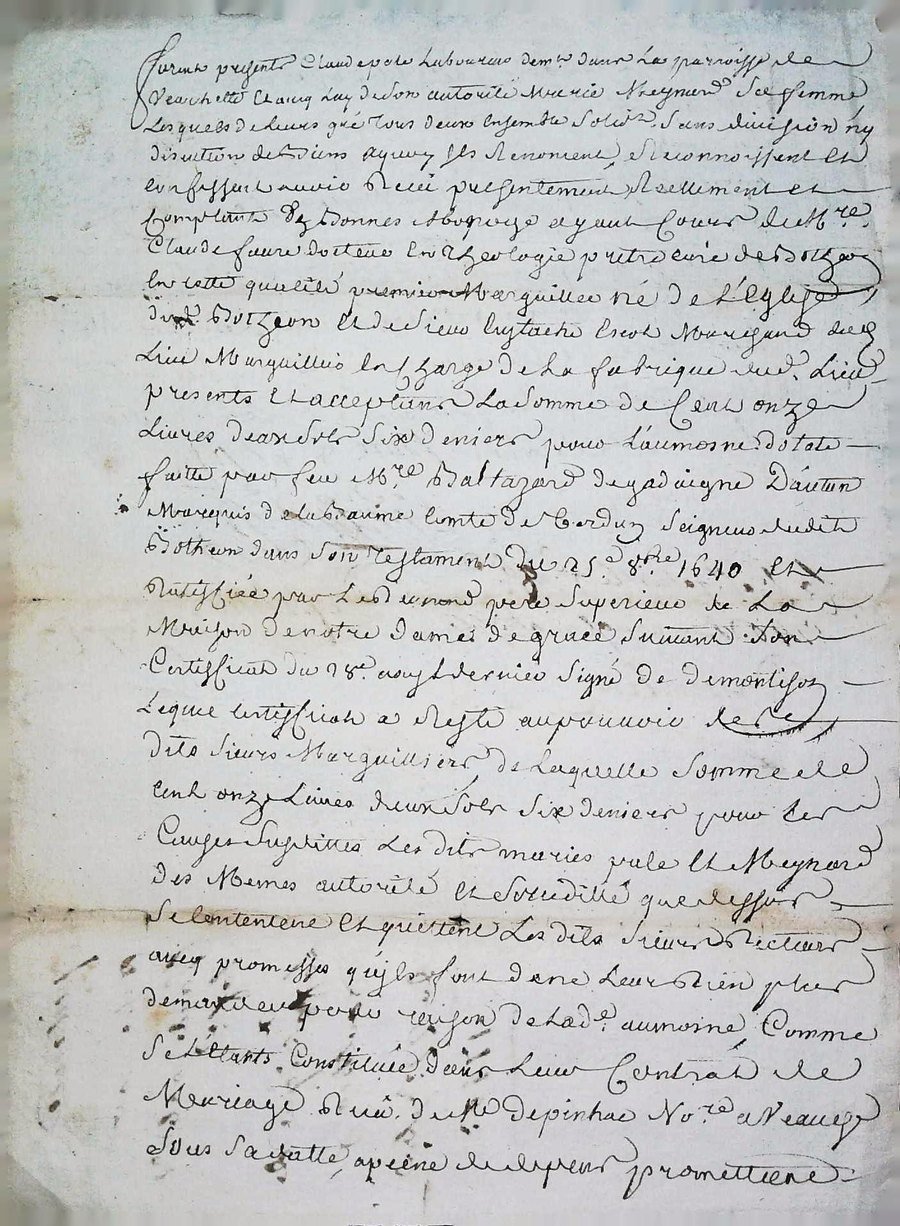 furent presents Claude pale Laboureur dem.t dans La paroisse de
Veauchette Et avq Luy de son autorité Marie Meynard Sa femme
Lesquels de leurs gré tous deux Ensemble Solid.t Sans division ny
discution de biens ayqvoy ils Renoncent, Reconnoissent Et
Confessent avoir Reçu presentement, Reellement et
Comptant En bonnes Especes ayant Cours de M.re
Claude faure docteur En Theologie prêtre curé de Botheon
En cette qualité premier Marguillier né de L'Eglise
dud. Botheon Et de Sieur Eustache Escot Marchand dud
Lieu Marguillier En Charge de La fabrique dud. Lieu
presents Et acceptans La Somme de Cent onze
Livres deux Sols Six deniers pour L'aumosne dotale
faitte par feu M.re Baltazard de gadaigne D'autun
Marquis de la Baume Comte de Verdun Seigneur dudit
Botheon dans Son Testament du 25.e 8.bre 1640 Et
Ratiffiée par Le Reverend pere Superieur de La
Maison de notre dames de grace Suivant Son
Certifficat du 28.e aoust dernier Signé de
Lequel Certifficat a Resté au pouvoir desd
dits Sieurs Marguilliers de Laquelle Somme de
Cent onze Livres deux Sols Six deniers pour Les
Causes Susdittes Les dits maries pale Et Meynard
des Memes autorité Et Solidité que dessus
Se Contentent Et quittent Les dits Sieurs Recteurs
avecq promesses qu'ils font de ne Leur Rien plus
demander pour raison de Lad.e aumosne, Comme
Se L'Etants Constituée dans Leur Contrat de
Mariage Reçu de M.e depinhac No.re a Veauche
Sous Sa datte, a peine de depens promettent